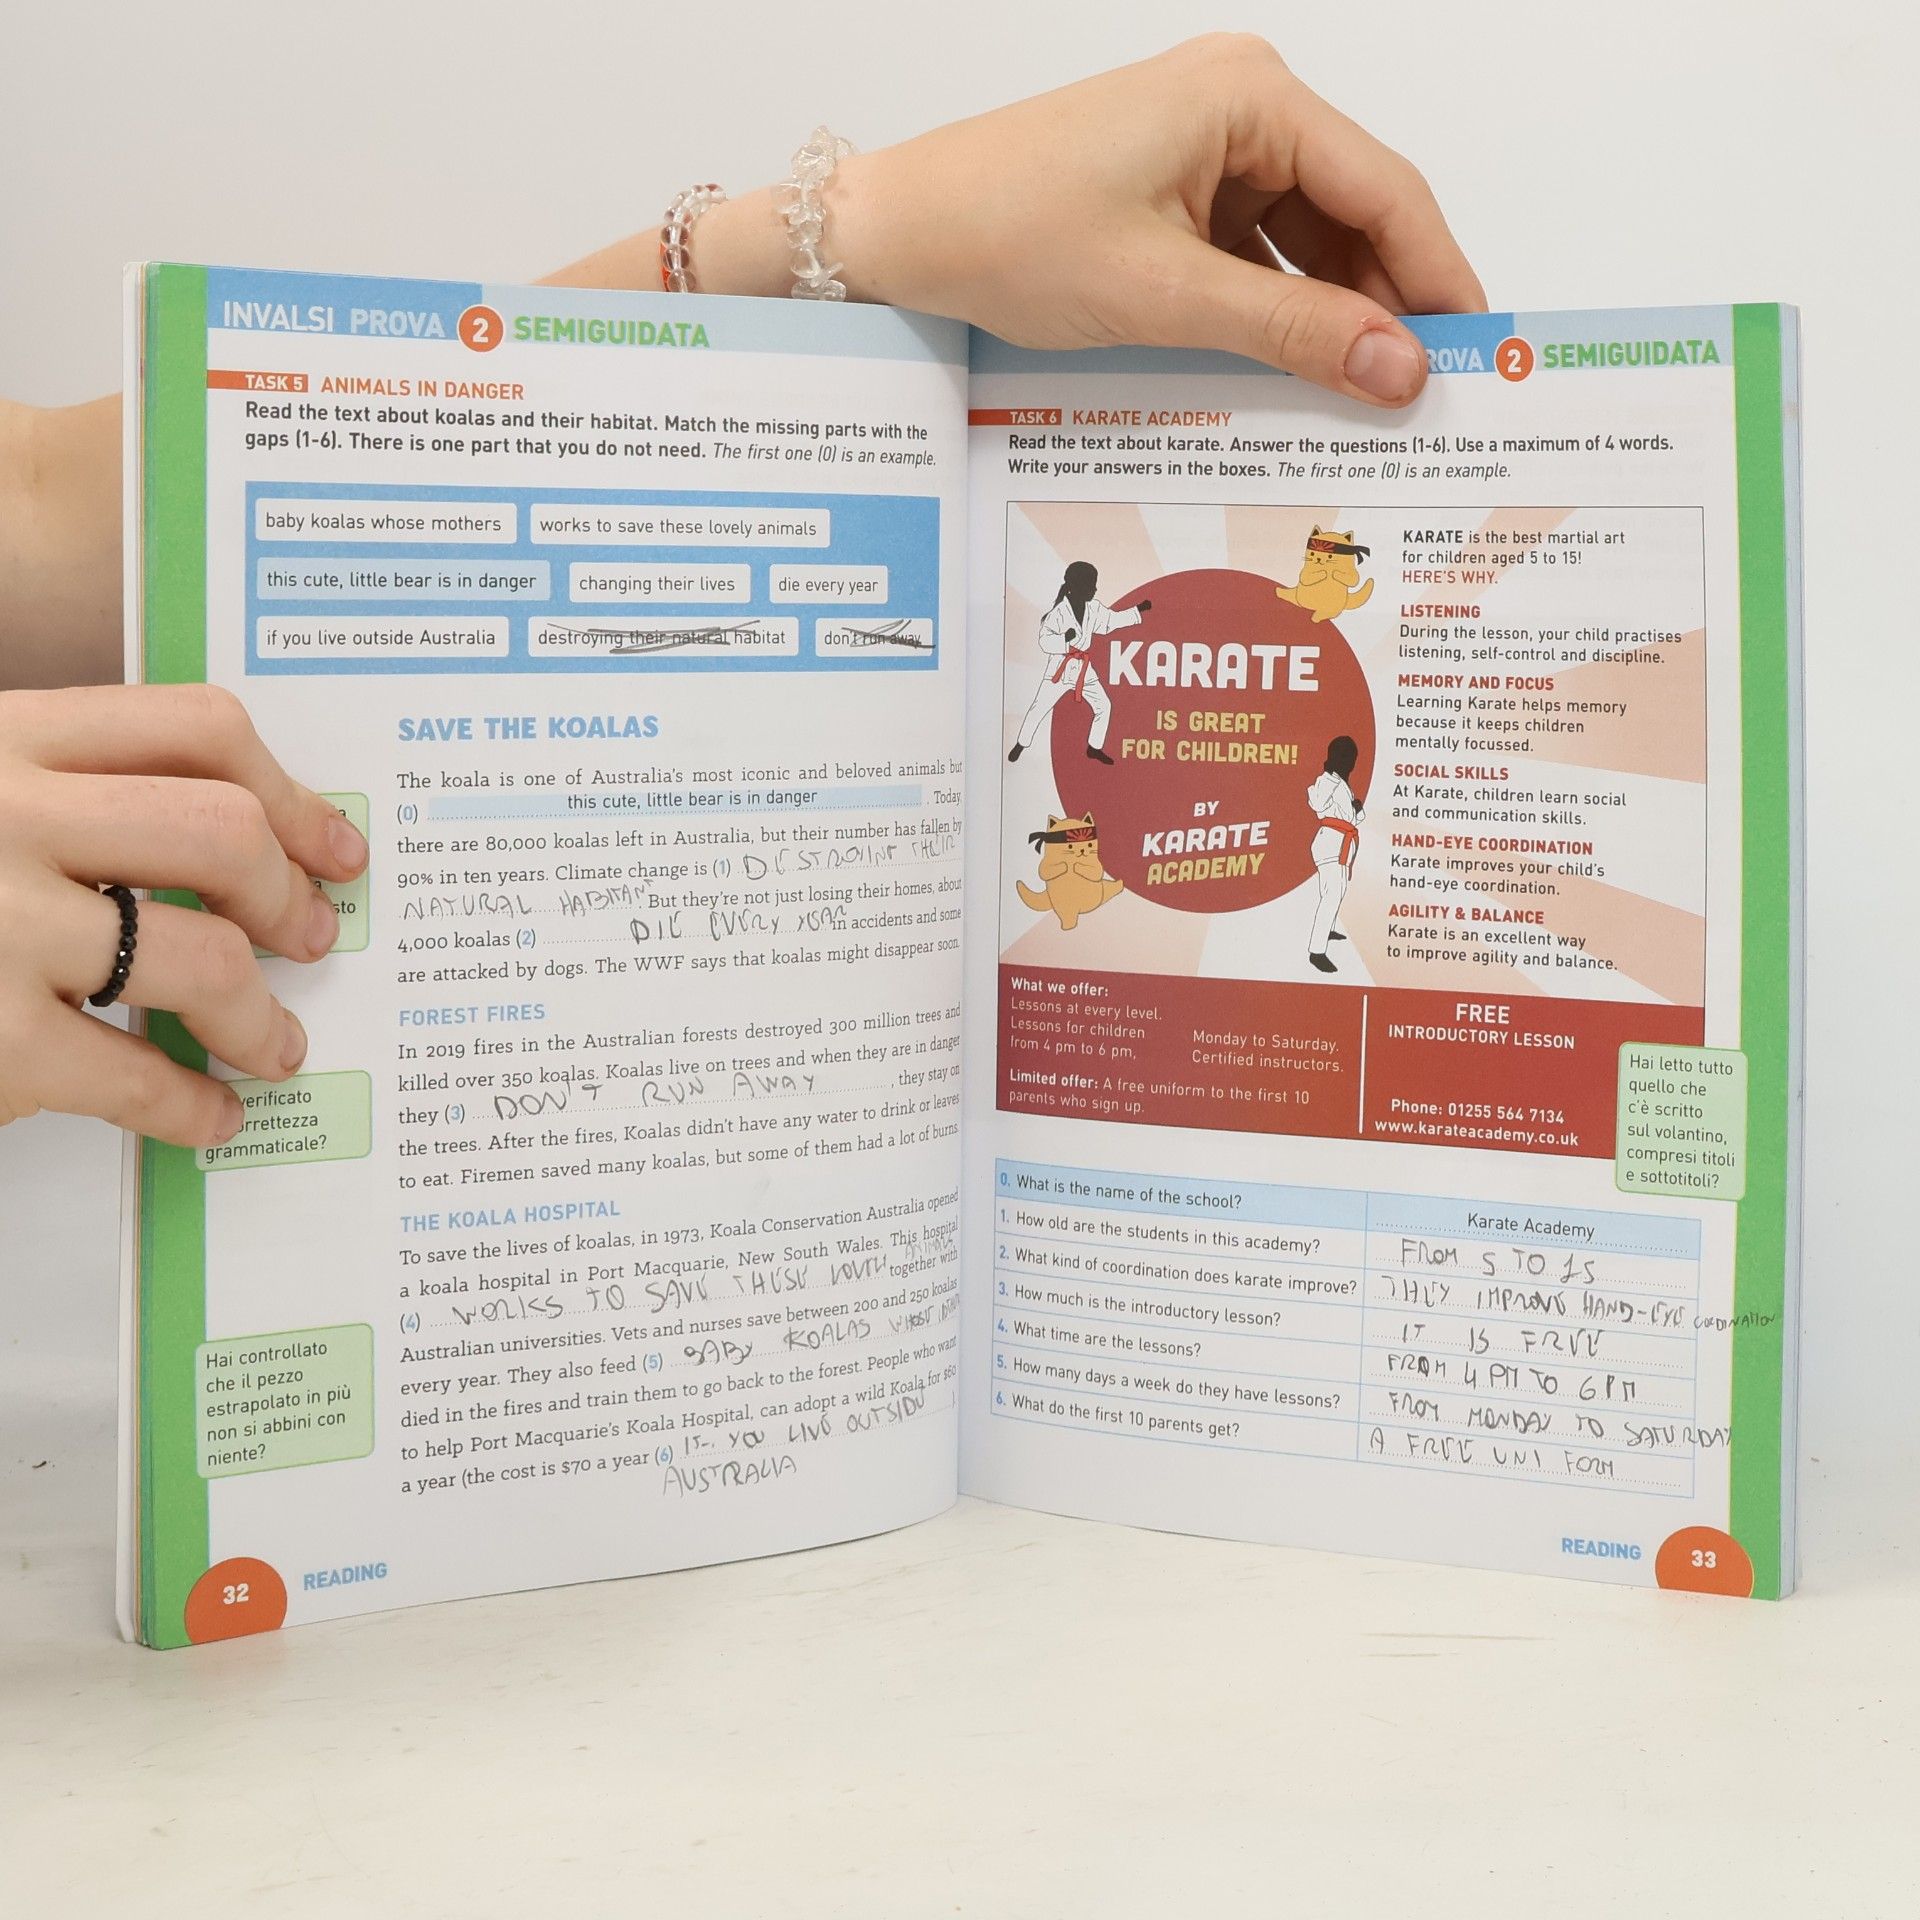 INVALSI PROVA 2 SEMIGUIDATA
TASK 5 ANIMALS IN DANGER
Read the text about koalas and their habitat. Match the missing parts with the
gaps (1-6). There is one part that you do not need. The first one (0) is an example.
baby koalas whose mothers
works to save these lovely animals
this cute, little bear is in danger
changing their lives
die every year
if you live outside Australia
destroying their natural habitat
don't run away
SAVE THE KOALAS
The koala is one of Australia's most iconic and beloved animals but
(0) this cute, little bear is in danger . Today,
there are 80,000 koalas left in Australia, but their number has fallen by
90% in ten years. Climate change is (1) DESTROYING THEIR
NATURAL HABITANT. But they're not just losing their homes, about
4,000 koalas (2) DIE EVERY YEAR in accidents and some
are attacked by dogs. The WWF says that koalas might disappear soon.
FOREST FIRES
In 2019 fires in the Australian forests destroyed 300 million trees and
killed over 350 koalas. Koalas live on trees and when they are in danger
they (3) DON'T RUN AWAY , they stay on
the trees. After the fires, Koalas didn't have any water to drink or leaves
to eat. Firemen saved many koalas, but some of them had a lot of burns.
THE KOALA HOSPITAL
To save the lives of koalas, in 1973, Koala Conservation Australia opened
a koala hospital in Port Macquarie, New South Wales. This hospital
ANIMALS
(4) WORKS TO SAVE THESE LOVELY together with
Australian universities. Vets and nurses save between 200 and 250 koalas
every year. They also feed (5) BABY KOALAS WHOSE
died in the fires and train them to go back to the forest. People who want
to help Port Macquarie's Koala Hospital, can adopt a wild Koala for $60
a year (the cost is $70 a year (6) IF YOU LIVE OUTSIDE )
AUSTRALIA
sto
verificato
rrettezza
grammaticale?
Hai controllato
che il pezzo
estrapolato in più
non si abbini con
niente?
32 READING
ROVA 2 SEMIGUIDATA
TASK 6 KARATE ACADEMY
Read the text about karate. Answer the questions (1-6). Use a maximum of 4 words.
Write your answers in the boxes. The first one (0) is an example.
KARATE
IS GREAT
FOR CHILDREN!
BY
KARATE
ACADEMY
KARATE is the best martial art
for children aged 5 to 15!
HERE'S WHY.
LISTENING
During the lesson, your child practises
listening, self-control and discipline.
MEMORY AND FOCUS
Learning Karate helps memory
because it keeps children
mentally focussed.
SOCIAL SKILLS
At Karate, children learn social
and communication skills.
HAND-EYE COORDINATION
Karate improves your child's
hand-eye coordination.
AGILITY & BALANCE
Karate is an excellent way
to improve agility and balance.
What we offer:
Lessons at every level.
Lessons for children
from 4 pm to 6 pm,
Monday to Saturday.
Certified instructors.
Limited offer: A free uniform to the first 10
parents who sign up.
FREE
INTRODUCTORY LESSON
Phone: 01255 564 7134
www.karateacademy.co.uk
Hai letto tutto
quello che
c'è scritto
sul volantino,
compresi titoli
e sottotitoli?
0. What is the name of the school? Karate Academy
1. How old are the students in this academy? FROM 5 TO 15
2. What kind of coordination does karate improve? THEY IMPROVE HAND-EYE COORDINATION
3. How much is the introductory lesson? IT IS FREE
4. What time are the lessons? FROM 4 PM TO 6 PM
5. How many days a week do they have lessons? FROM MONDAY TO SATURDAY
6. What do the first 10 parents get? A FREE UNIFORM
READING 33